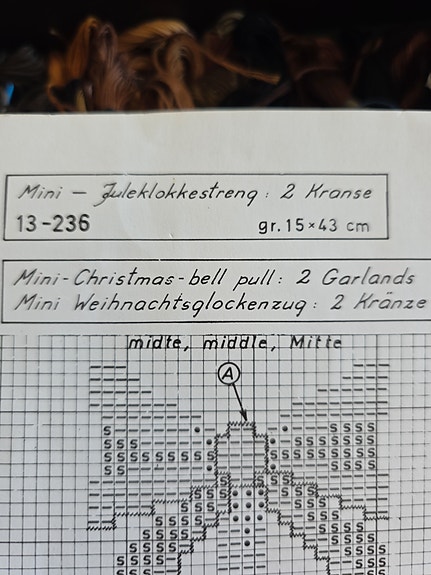 Mini – Juleklokkestreng : 2 Kranse
13-236 gr. 15×43 cm
Mini-Christmas-bell pull: 2 Garlands
Mini Weihnachtsglockenzug : 2 Kränze
midte, middle, Mitte
A